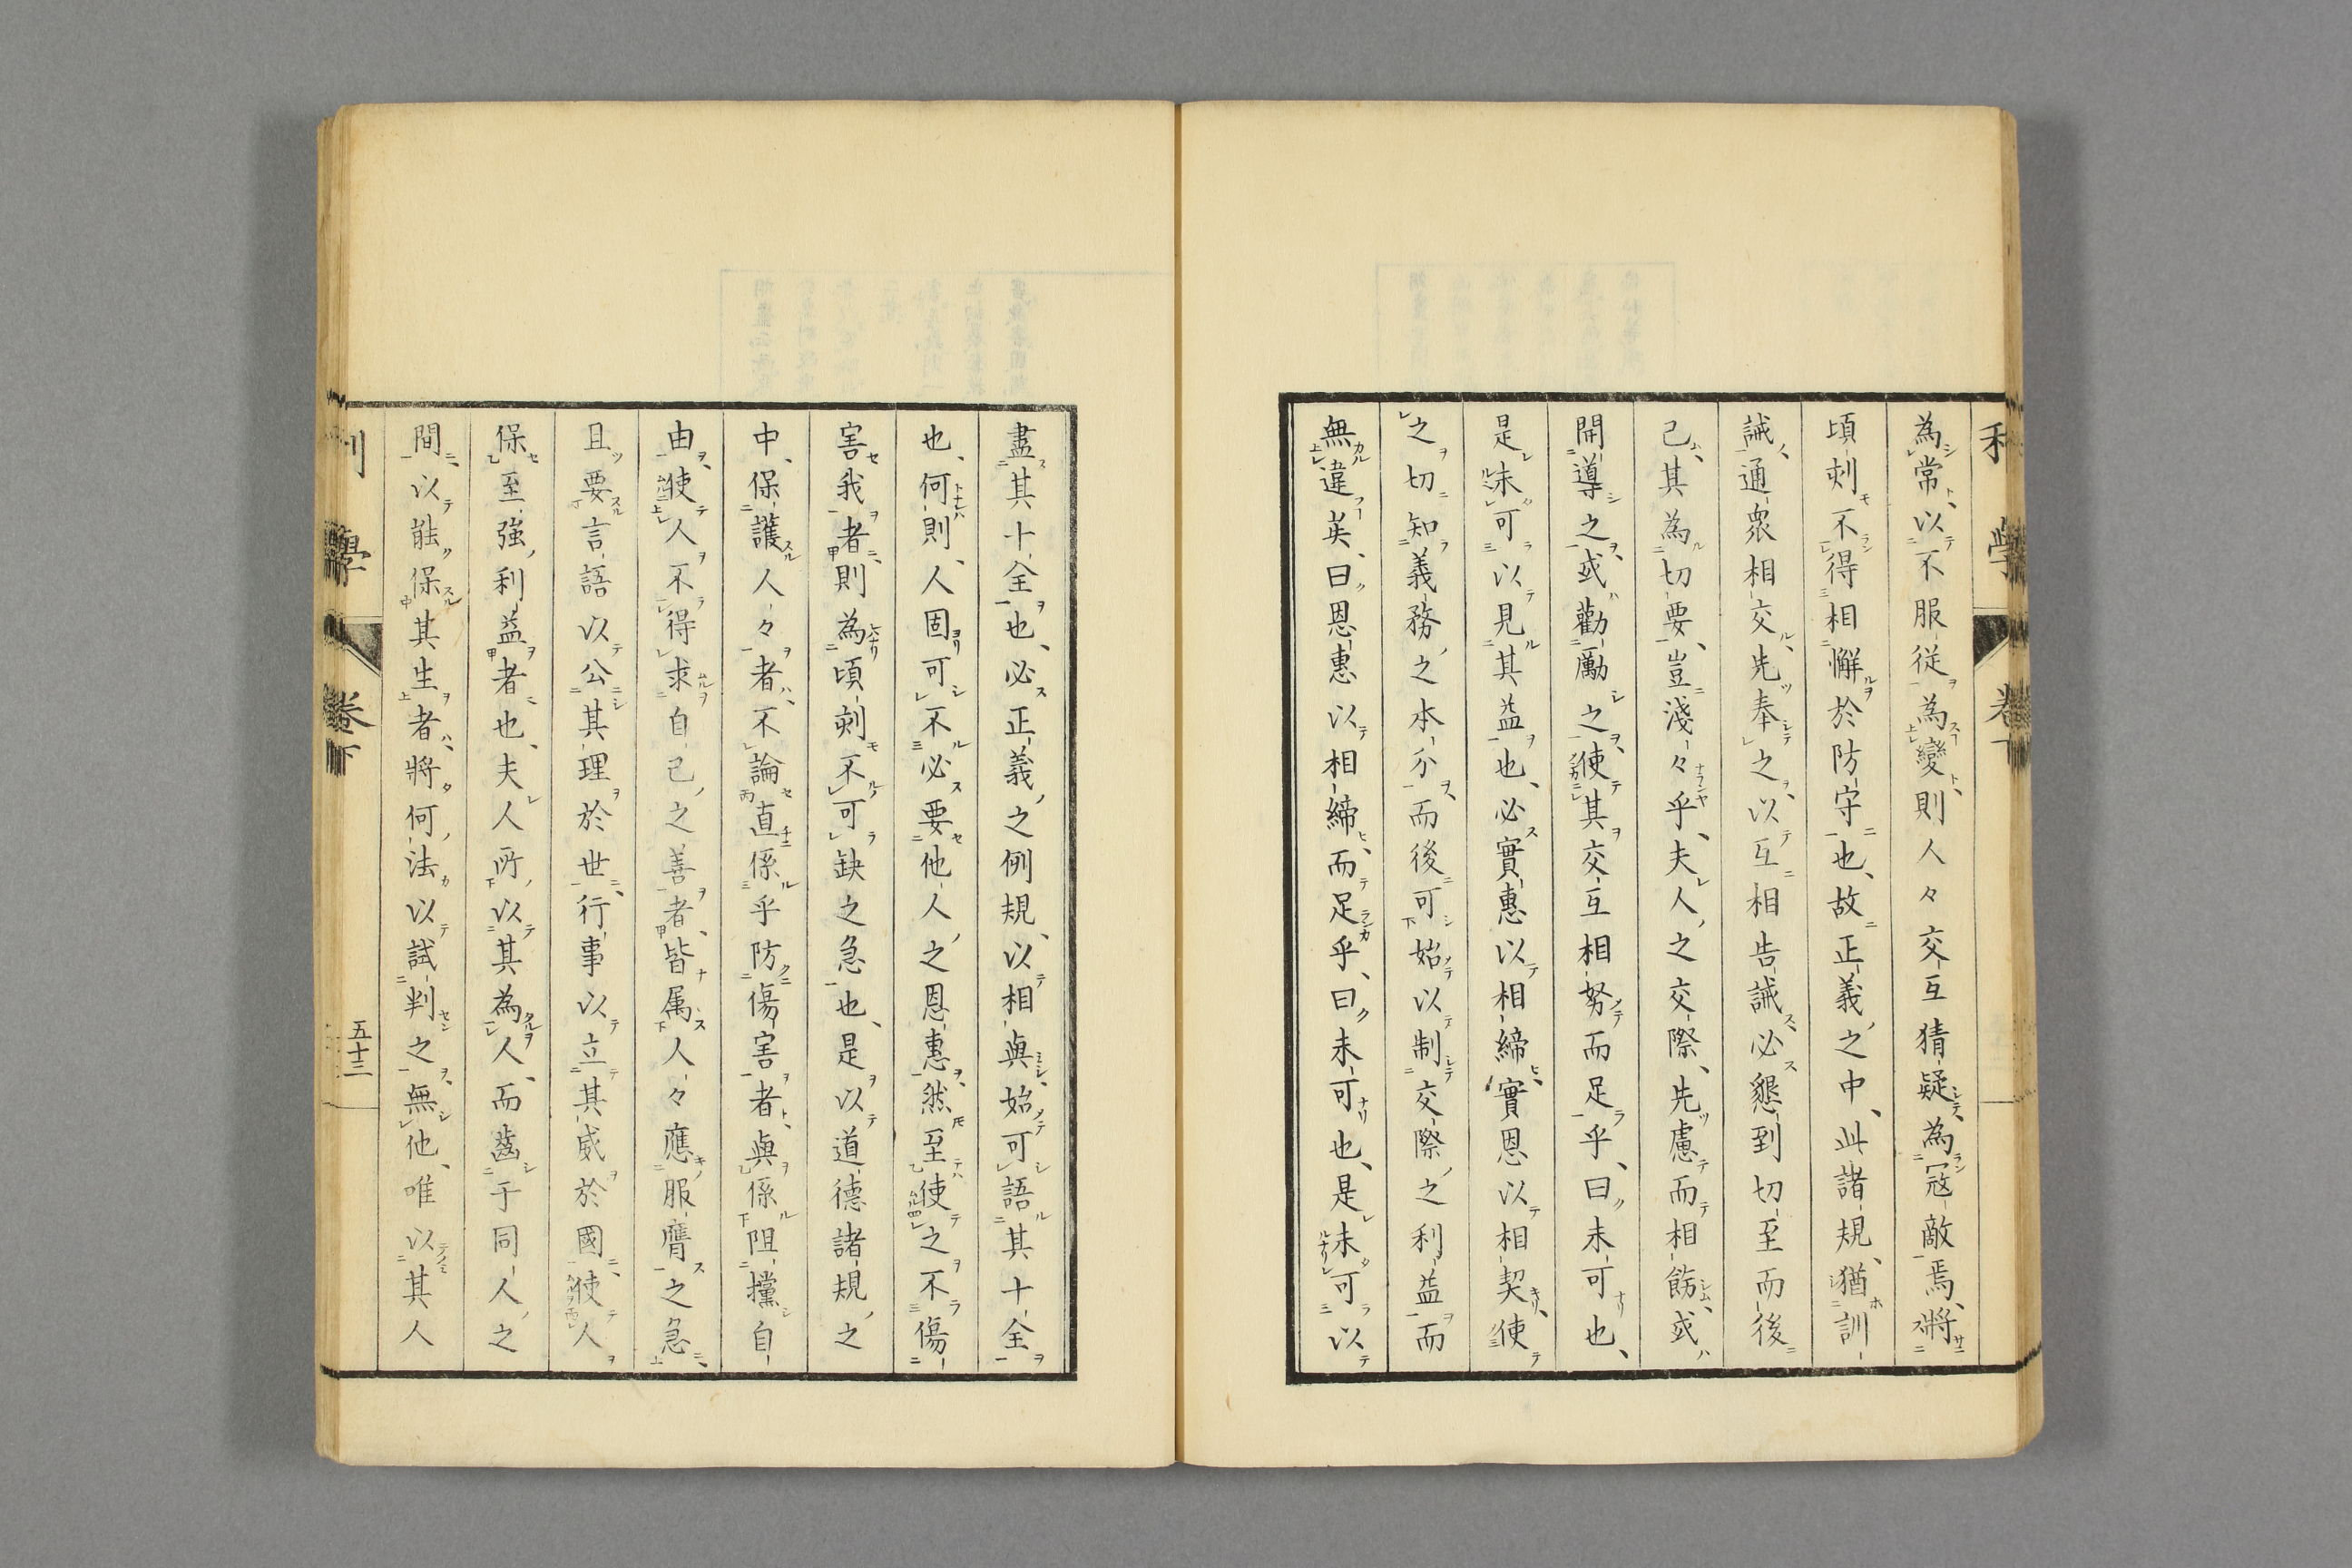 為常、以不服從為變、則人々交互猜疑、為冦敵焉、將
頃刻不得相懈於防守也、故正義之中、此諸規、猶訓
誡、通衆相交、先奉之、以互相告誡、必懇到切至而後
已、其為切要、豈淺々乎、夫人之交際、先慮而相飭、或
開導之、或勸勵之、使其交互相努而足乎、曰未可也、
是未可以見其益也、必實惠以相締、實恩以相契、使
之切知義務之本分、而後可始以制交際之利益而
無違矣、曰恩惠以相締、而足乎、曰未可也、是未可以
利學 卷下
盡其十全也、必正義之例規、以相與、始可語其十全
也、何則、人固可不必要他人之恩惠、然至使之不傷
害我者、則為頃刻不可缺之急也、是以道德諸規、之
中、保護人々者、不論直係乎防傷害者、與係阻攩自
由、使人不得求自己之善者、皆属人々應服膺之急、
且要言語以公其理於世、行事以立其威於國、使人
保至強利益者也、夫人所以其為人、而齒于同人之
間、以能保其生者、將何法以試判之、無他、唯以其人
利學 卷下 五十三